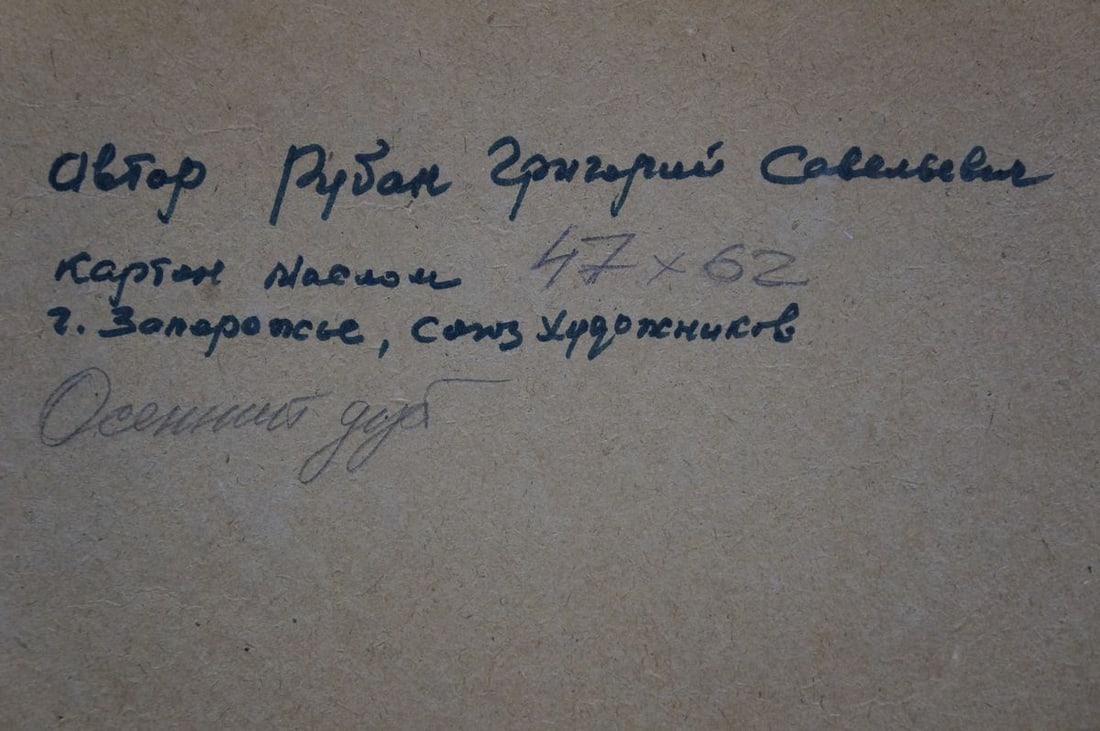 Автор Рубан Григорий Савельевич
картон маслом 47 x 62
г. Запорожье, союз художников
Осенний дуб